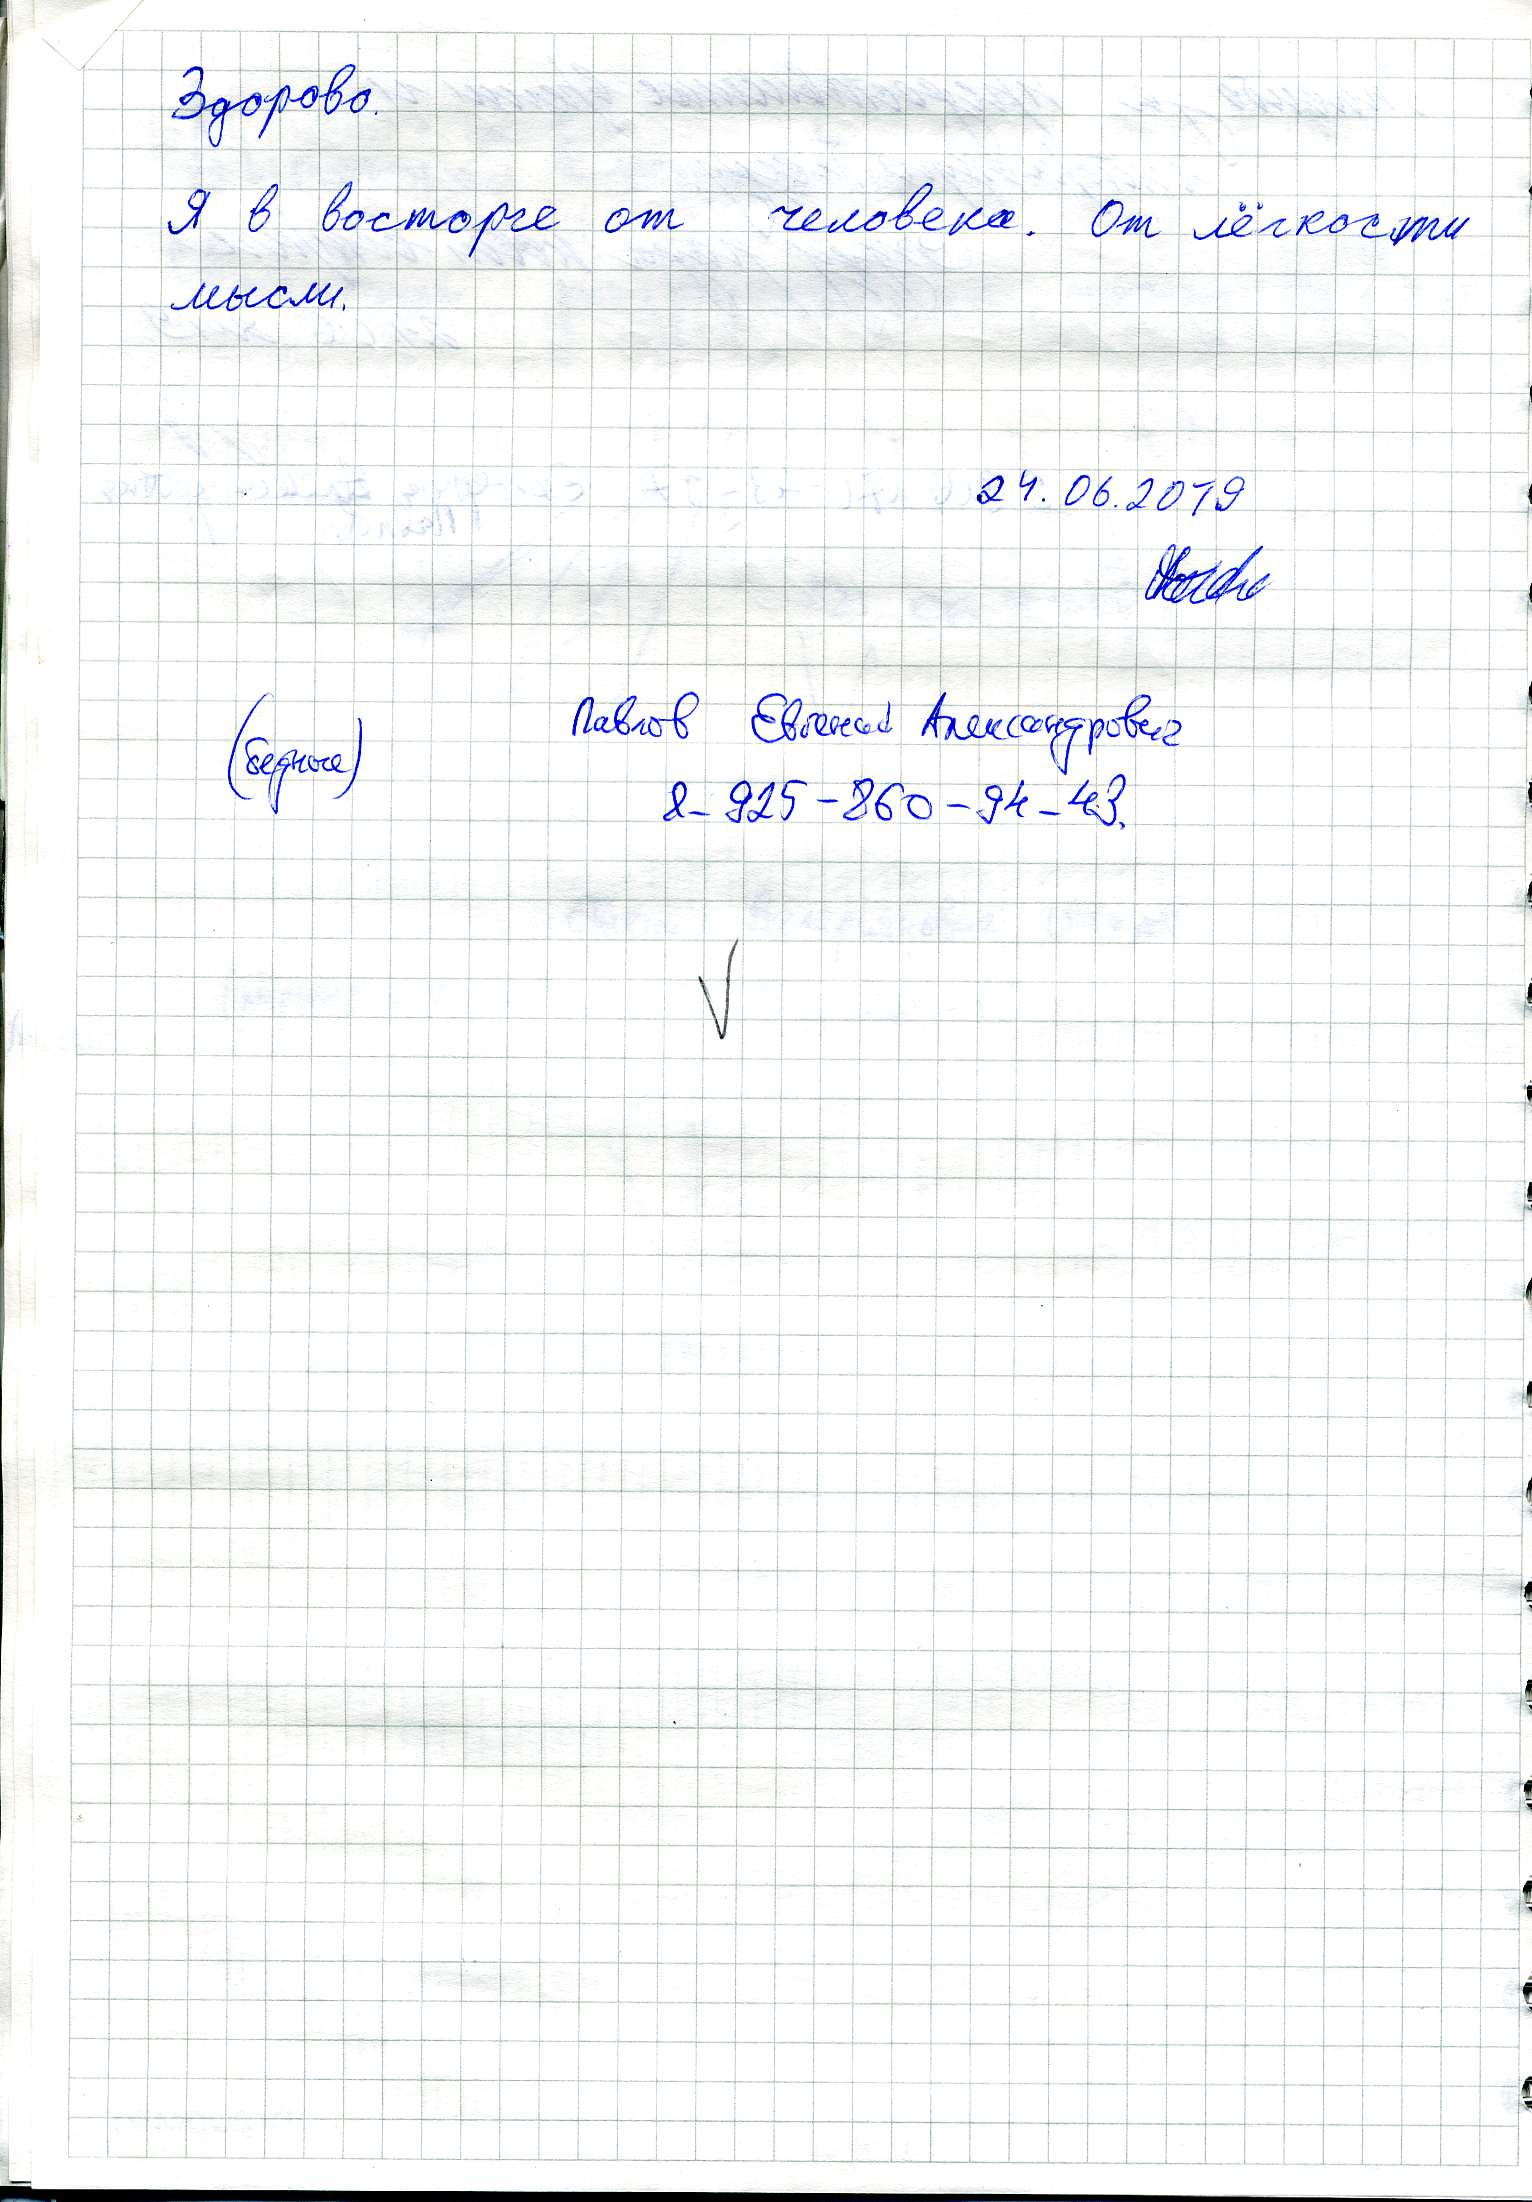 Здорово.
Я в восторге от человека. От лёгкости
мысли.
24.06.2019
Павлов Евгений Александрович
(бедные)
8-925-860-94-43.